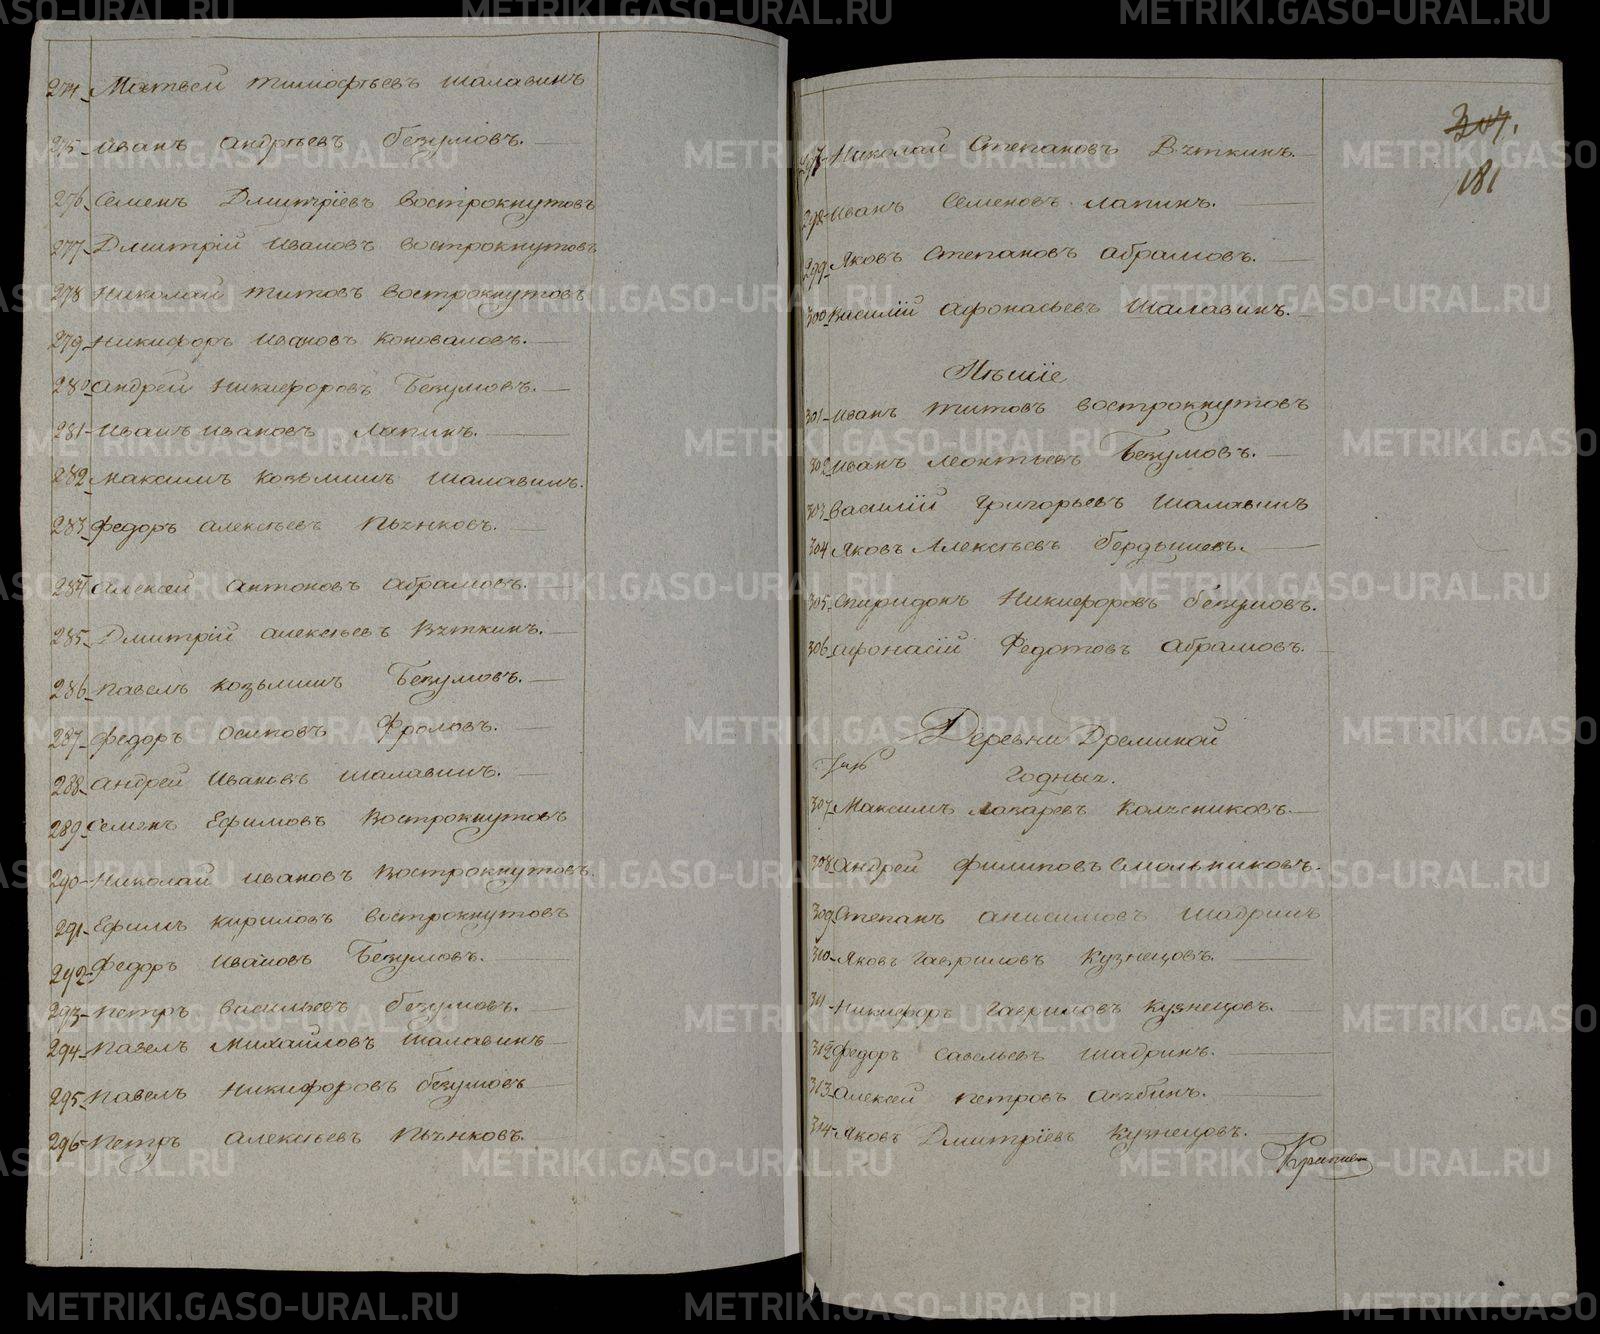 274 Матвей Тимофѣевъ Шалавинъ
275 Иванъ Андрѣевъ Безумовъ.
276 Семенъ Дмитрiевъ Вострокнутовъ
277 Дмитрiй Ивановъ Вострокнутовъ
278 Николай Титовъ Вострокнутовъ
279 Никифоръ Ивановъ Коноваловъ.
280 Андрей Никифоровъ Безумовъ.
281 Иванъ Ивановъ Лапинъ.
282 Максимъ Козьминъ Шалавинъ.
283 Федоръ Алексѣевъ Пьянковъ.
284 Алексей Антоновъ Абрамовъ.
285 Дмитрiй Алексѣевъ Вяткинъ.
286 Павелъ Козьминъ Безумовъ.
287 Федоръ Осиповъ Фроловъ.
288 Андрей Ивановъ Шалавинъ.
289 Семенъ Ефимовъ Вострокнутовъ
290 Николай Ивановъ Вострокнутовъ.
291 Ефимъ Кириловъ Вострокнутовъ
292 Федоръ Ивановъ Безумовъ.
293 Петръ Васильевъ Безумовъ.
294 Павелъ Михайловъ Шалавинъ
295 Павелъ Никифоровъ Безумовъ
296 Петръ Алексѣевъ Пьянковъ.
307.
181
297 Николай Степановъ Вяткинъ.
298 Иванъ Семеновъ Лапинъ.
299 Яковъ Степановъ Абрамовъ.
300 Василiй Афонасьевъ Шалавинъ.
Пѣшiе
301 Иванъ Титовъ Вострокнутовъ
302 Иванъ Леонтьевъ Безумовъ.
303 Василiй Григорьевъ Шалавинъ
304 Яковъ Алексѣевъ Бердышевъ.
305 Спиридонъ Никифоровъ Безумовъ.
306 Афонасiй Федотовъ Абрамовъ.
Деревни
Годныхъ.
307 Максимъ Лазаревъ Колѣсниковъ.
308 Андрей Филиповъ Смольниковъ.
309 Степанъ Анисимовъ Шадринъ
310 Яковъ Гавриловъ Кузнецовъ.
311 Никифоръ Гавриловъ Кузнецовъ.
312 Федоръ Савельевъ Шадринъ.
313 Алексей Петровъ
314 Яковъ Дмитрiевъ Кузнецовъ.
METRIKI.GASO-URAL.RU